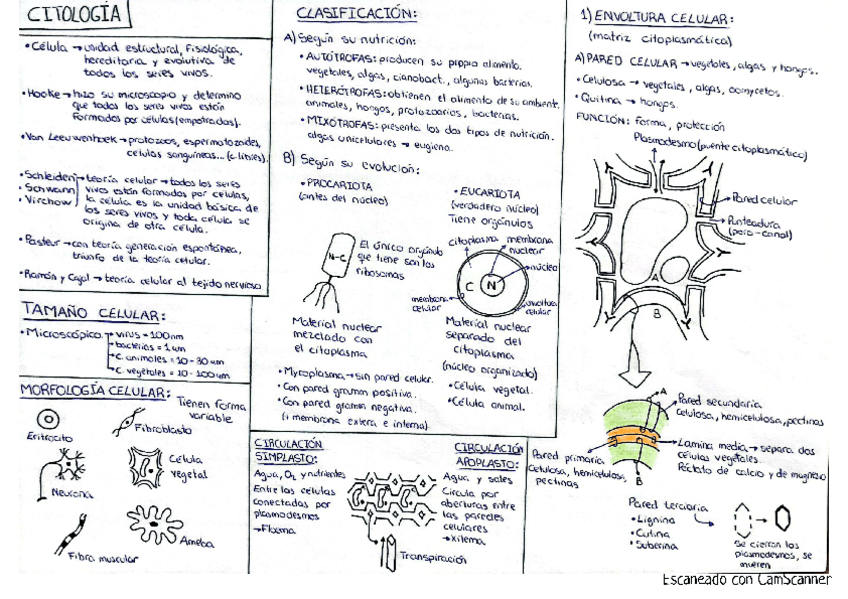 CITOLOGÍA
• Célula → unidad estructural, fisiológica,
hereditaria y evolutiva de
todos los seres vivos.
• Hooke → hizo su microscopio y determino
que todos los seres vivos están
formados por células (empotradas).
• Van Leeuwenhoek → protozoos, espermatozoides,
células sanguíneas... (c. libres).
• Schleiden
• Schwann
• Virchow
teoría celular → todos los seres
vivos están formados por células,
la célula es la unidad básica de
los seres vivos y toda célula se
origina de otra célula.
• Pasteur → con teoría generación espontánea,
triunfo de la teoría celular.
• Ramón y Cajal → teoría celular al tejido nervioso
TAMAÑO CELULAR:
• Microscópico
→ virus = 100 nm
→ bacterias = 1 um
→ C. animales = 10 - 30 um
→ C. vegetales = 10 - 100 um
MORFOLOGÍA CELULAR:
Tienen forma
variable
Eritrocito
Fibroblasto
Neurona
Célula
vegetal
Fibra muscular
Ameba
CLASIFICACIÓN:
A) Según su nutrición:
• AUTÓTROFAS: producen su propio alimento.
vegetales, algas, cianobact., algunas bacterias.
• HETERÓTROFAS: obtienen el alimento de su ambiente.
animales, hongos, protozoarios, bacterias.
• MIXÓTROFAS: presenta los dos tipos de nutrición.
algas unicelulares → euglena.
B) Según su evolución:
• PROCARIOTA
(antes del núcleo)
N-C
El único orgánulo
que tiene son los
ribosomas
Material nuclear
mezclado con
el citoplasma
• EUCARIOTA
(verdadero núcleo)
Tiene orgánulos
citoplasma
membrana
nuclear
núcleo
C
N
membrana
celular
envoltura
celular
Material nuclear
separado del
citoplasma
(núcleo organizado)
• Mycoplasma → sin pared celular.
• Con pared gramm positiva.
• Con pared gramm negativa.
(→ membrana externa e interna).
• Célula vegetal.
• Célula animal.
CIRCULACIÓN
SIMPLASTO:
Agua, O2 y nutrientes
Entre las células
conectadas por
plasmodesmos
→ Floema
CIRCULACIÓN
APOPLASTO:
Agua y sales
Circula por
aberturas entre
las paredes
celulares
→ xilema
Transpiración
1) ENVOLTURA CELULAR:
(matriz citoplasmática)
A) PARED CELULAR → vegetales, algas y hongos.
• Celulosa → vegetales, algas, oomycetos.
• Quitina → hongos.
FUNCIÓN: forma, protección
Plasmodesmo (puente citoplasmático)
Pared celular
Punteadura
(poro - canal)
A
B
A
Pared secundaria
celulosa, hemicelulosa, pectinas
Lamina media → separa dos
células vegetales.
Pectato de calcio y de magnesio
Pared primaria
Celulosa, hemicelulosa,
pectinas
B
Pared terciaria
• Lignina
• Cutina
• Suberina
Se cierran los
plasmodesmos, se
mueren
Escaneado con CamScanner